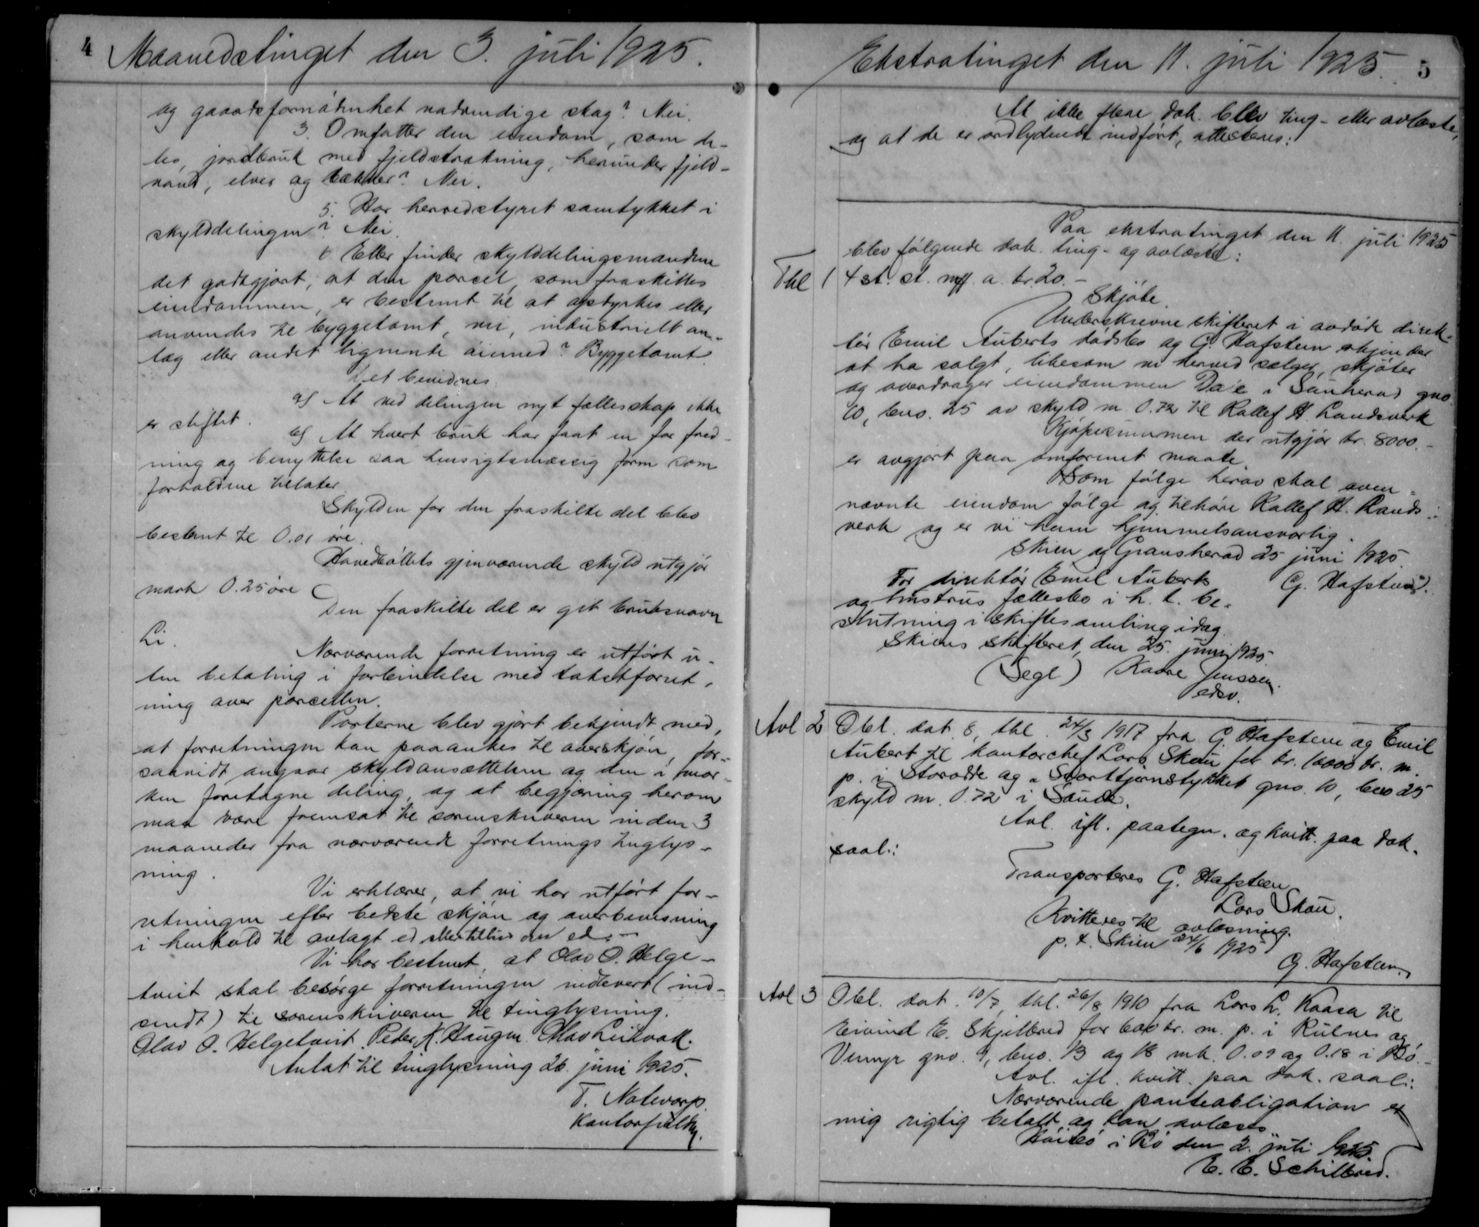 4 Maanedstinget den 3. juli 1925.
og gaardsfornødenhet nødvendige skog? Nei.
3. Omfatter den eiendom, som de-
les, jordbruk med fjeldstrækning, herunder fjeld-
vand, elver og bækker? Nei.
5. Har herredstyret samtykket i
skylddelingen? Nei.
6 Eller finder skylddelingsmændene
det godtgjort, at den parcel, som fraskilles
eiendommen, er bestemt til at opdyrkes eller
anvendes til byggetomt, vei, industrielt an-
læg eller andet lignende øiemed? Byggetomt
Det bevidnes
a) At ved delingen nyt fællesskap ikke
er stiftet.
b) At hvert bruk har faat en for fred-
ning og benyttelse saa hensigtsmæssig form som
forholdene tillater
Skylden for den fraskilte del blev
bestemt til 0.01 øre.
Hovedbølets gjenværende skyld utgjør
mark 0.25 øre
Den fraskilte del er git bruksnavn
Li.
Nærværende forretning er utført u-
ten betaling i forbindelse med takstforret-
ning over parcellen.
Parterne blev gjort bekjendt med,
at forretningen kan paaankes til overskjøn for-
saavidt angaar skyldansættelsen og den i mar-
ken foretagne deling, og at begjæring herom
maa være fremsat til sorenskriveren inden 3
maaneder fra nærværende forretnings tinglys-
ning.
Vi erklærer, at vi har utført for-
retningen efter bedste skjøn og overbevisning
i henhold til avlagt ed
Vi har bestemt at Olav O. Helge-
tveit skal besørge forretningen indlevert (ind-
sendt) til sorenskriveren til tinglysning.
Olav O. Helgetveit. Peder H. Haugen Olav
Antat til tinglysning 26. juni 1925.
T. Notevarp.
Kontorfuldm.
Ekstratinget den 11. juli 1925. 5
At ikke flere dok. blev ting- eller avlæste,
og at de er ordlydende indført, attesteres.
Paa ekstratinget den 11. juli 1925
blev følgende dok. ting- og avlæste:
Thl 1 4 st. st. mf. a. kr 20. -
Skjøte.
Underskrevne skifteret i avdøde direk-
tør Emil Auberts dødsbo og G. Hafsteen skjønder
at ha solgt, likesom vi herved sælger, skjøter
og overdrager eiendommen Dale i Sauherad gno
10, bno. 25 av skyld m 0.72 til Kallef H Landsverk
Kjøpesummen der utgjør kr. 8000.-
er avgjort paa omforenet maate
Som følge herav skal oven-
nævnte eiendom følge og tilhøre Kallef H. Lands-
verk og er vi ham hjemmelsansvarlig.
Skien og Gransherad 25 juni 1925.
For direktør Emil Auberts G. Hafsteen.
og hustrus fællesbo i h. t. be-
slutning i skiftesamling idag.
Skiens skifteret, den 25. juni 1925.
(Segl) Kaare Jenssen.
edsv.
Avl 2 Obl. dat. &, thl. 24/3 1917 fra G. Hafsteen og Emil
Aubert til kontorchef Lars Skau for kr. 16000 kr. m.
p. i Storodde og Svarttjernstykket gno. 10, bno 25
skyld m. 0.72 i Saude.
Avl. ifl. paategn. og kvitt. paa dok.
saal.:
Transporteres G. Hafsteen
Lars Skau.
Kvitteres til avlæsning.
p. t. Skien 24/6 1925
G. Hafsteen
Avl 3 Obl. dat. 10/7, thl. 26/8 1910 fra Lars L. Kaasa til
Eivind E. Skjelbred for 600 kr. m. p. i Kulnes og
Venmyr gno. 9, bno. 13 og 18 mk. 0.09 og 0.18 i Bø.
Avl. ifl. kvitt. paa dok. saal.:
Nærværende panteobligation er
mig rigtig betalt og kan avlæses
i Bø den 2. juli 1925.
E. E. Schilbred.